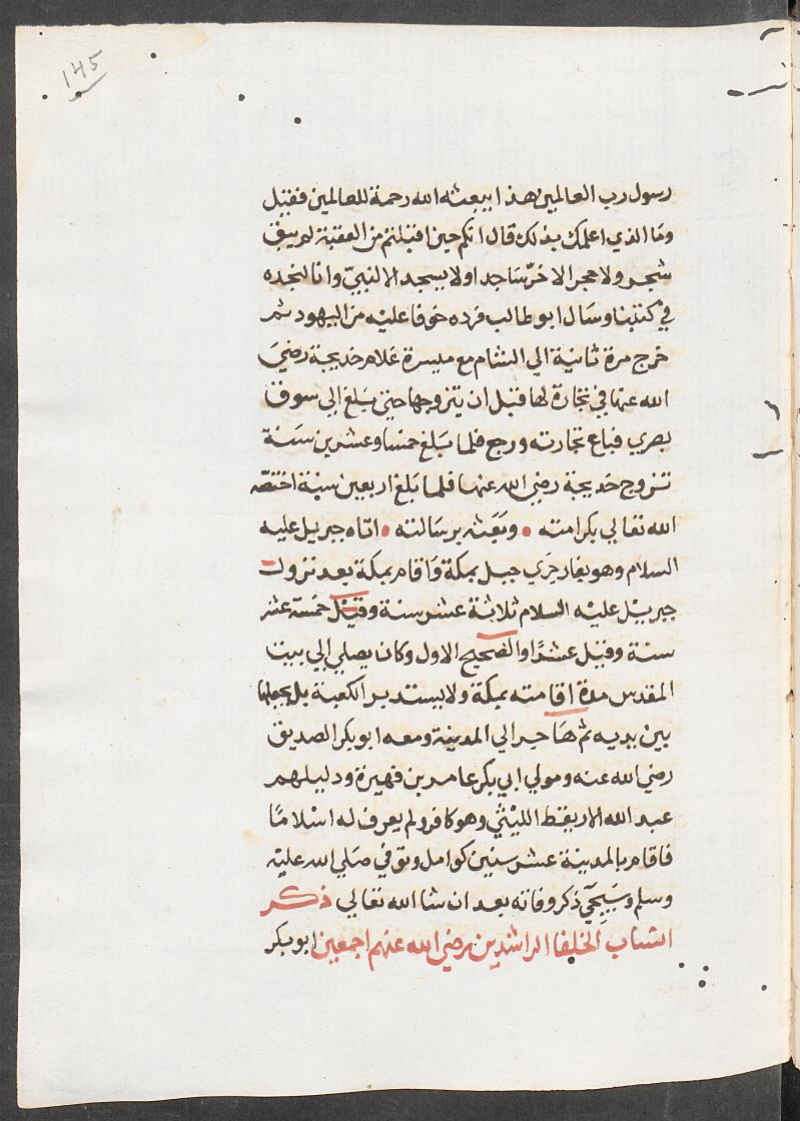 145
رسول رب العالمين هذا يبعثه الله رحمة للعالمين فقيل
وما الذي اعلمك بذلك قال انكم حين اقبلتم من العقبة لم يبق
شجر ولا حجر الا خر ساجدا ولا يسجد الا لنبيّ وانا نجده
في كتبنا وسال ابو طالب فرده خوفا عليه من اليهود ثم
خرج مرة ثانية الي الشام مع ميسرة غلام خديجة رضي
الله عنها في تجارة لها قبل ان يتزوجها حتي بلغ الي سوق
بصري فباع تجارته ورجع فلما بلغ خمسا وعشرين سنة
تزوج خديجة رضي الله عنها فلما بلغ اربعين سنة اختصّه
الله تعالي بكرامته • وبَعَثه برسالته • اتاه جبريل عليه
السلام وهو بغار جَري جبل بمكة وَاقام بمكة بعد نزول
جبريل عليه السلام ثلاثة عشر سنة وقيل خمسة عشر
سنة وقيل عشرًا والصحيح الاول وكان يصلي الي بيت
المقدس مدة اقامته بمكة ولا يستدبر الكعبة بل يجعلها
بين يديه ثم هَاجر الي المدينة ومعه ابو بكر الصديق
رضي الله عنه ومولي ابي بكر عامر بن فهيرة ودليلهم
عبد الله الاريقط الليثي وهو كافر ولم يعرف له اسْلامًا
فاقام بالمدينة عشر سنين كوامل وتوفي صَلي الله عليه
وسلم وسَيجيّ ذكر وفاته بعد ان شا الله تعالي ذكر
انساب الخلفا الراشدين رضي الله عنهم اجمعين ابو بكر